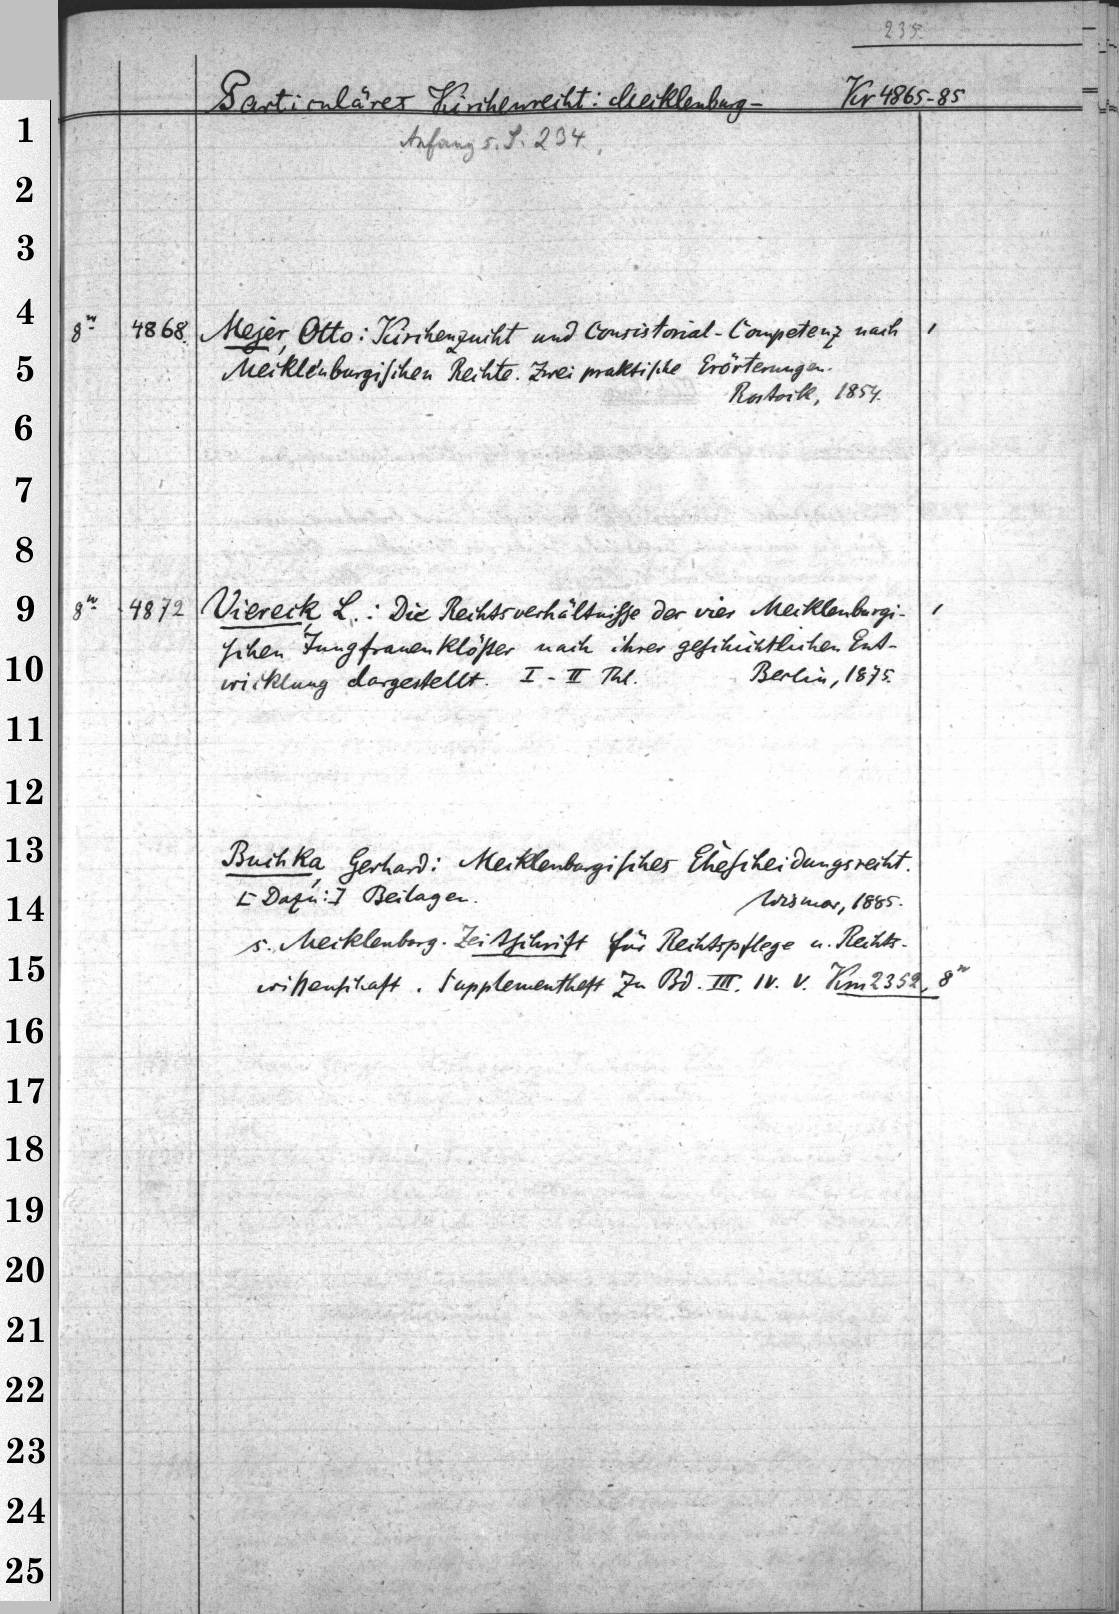 235.
Particuläres Kirchenrecht: Mecklenburg- Kr 4865-85
Anfang s. S. 234.
8º 4868. Mejer, Otto: Kirchenzucht und Consistorial-Competenz nach
Mecklenburgischen Rechte. Zwei praktische Erörterungen.
Rostock, 1854.
8º 4872 Viereck, L.: Die Rechtsverhältnisse der vier Mecklenburgi-
schen Jungfrauenklöster nach ihrer geschichtlichen Ent-
wicklung dargestellt. I - II Thl. Berlin, 1875.
Buchka, Gerhard: Mecklenburgisches Ehescheidungsrecht.
[Dazu:] Beilagen. Wismar, 1885.
s. Mecklenburg. Zeitschrift für Rechtspflege u. Rechts-
wissenschaft. Supplementheft zu Bd. III. IV. V. Km 2352, 8º
1
2
3
4
5
6
7
8
9
10
11
12
13
14
15
16
17
18
19
20
21
22
23
24
25